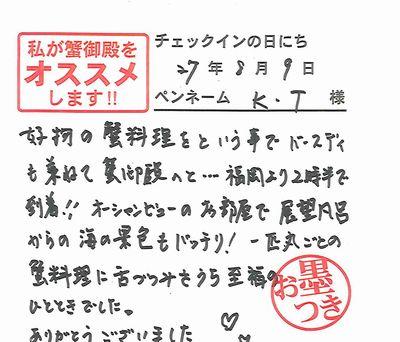 私が蟹御殿を
オススメ
します!!
チェックインの日にち
27年8月9日
ペンネーム K・T 様
好物の蟹料理をという事でバースディ
も兼ねて蟹御殿へと…福岡より2時半で
到着!! オーシャンビューのお部屋で展望風呂
からの海の景色もバッチリ! 一匹丸ごとの
蟹料理に舌づつみをうち至福の
ひとときでした。
ありがとうございました ♡
お墨つき